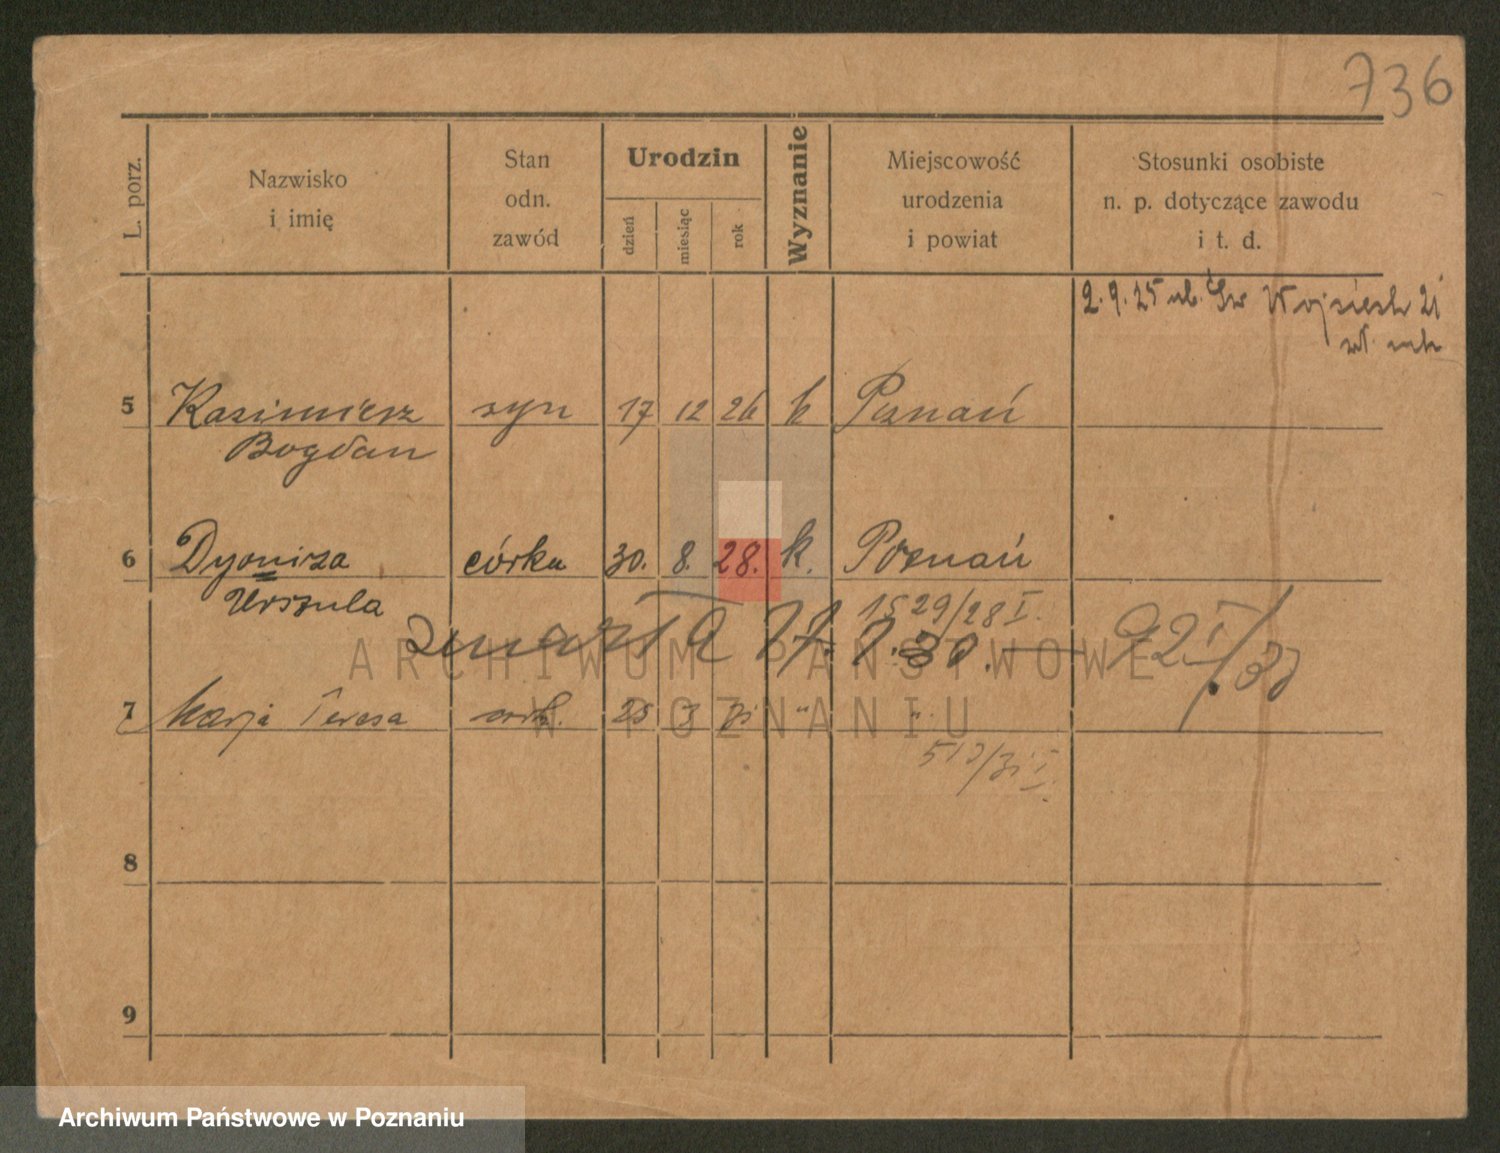 736
L. porz.
Nazwisko
i imię
Stan
odn.
zawód
Urodzin
dzień
miesiąc
rok
Wyznanie
Miejscowość
urodzenia
i powiat
Stosunki osobiste
n. p. dotyczące zawodu
i t. d.
2.9.25 ul. Św Wojciech 21
5 Kazimierz syn 17 12 26 k Poznań
Bogdan
6 Dyoniza córka 30. 8. 28. k. Poznań
Urszula 1529/28 I.
zmarła 17. 1. 30. — 92 I/30
7 Marja Teresa 25 3 31 " "
513/31 I.
8
9
ARCHIWUM PAŃSTWOWE
W POZNANIU
Archiwum Państwowe w Poznaniu